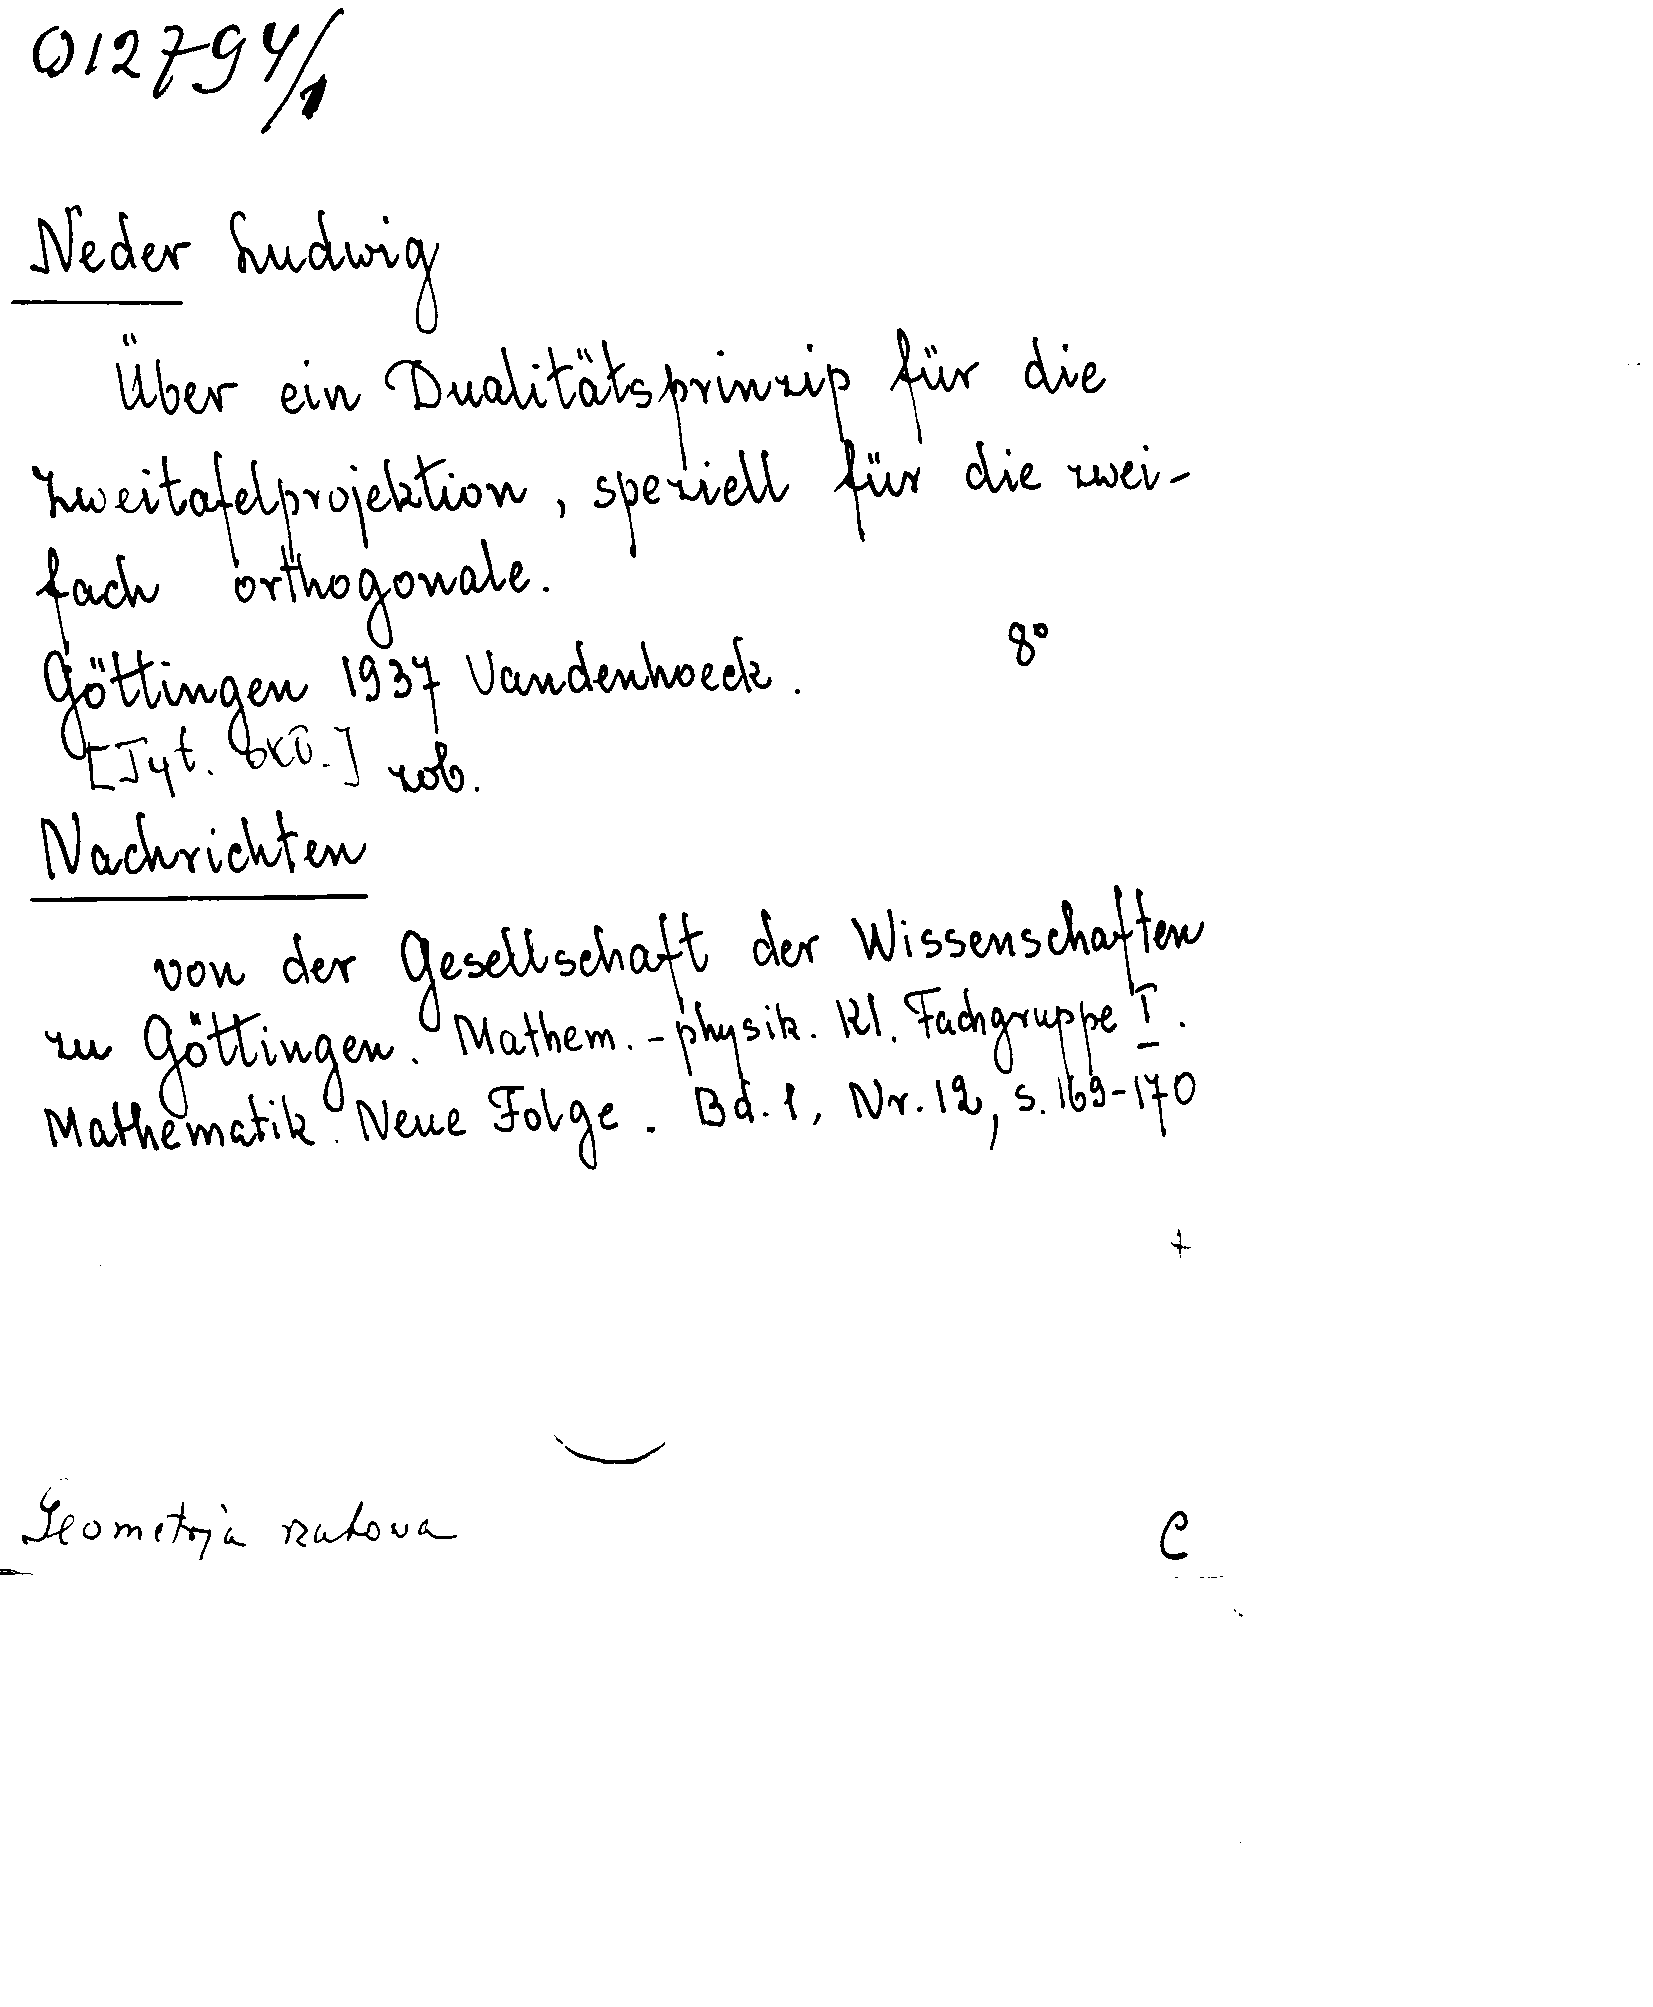 012794/1
Neder Ludwig
Über ein Dualitätsprinzip für die
Zweitafelprojektion, speziell für die zwei-
fach orthogonale.
8°
Göttingen 1937 Vandenhoeck.
[Tyt. okł.] zob.
Nachrichten
von der Gesellschaft der Wissenschaften
zu Göttingen. Mathem.-physik. Kl. Fachgruppe I.
Mathematik. Neue Folge. Bd. 1, Nr. 12, s. 169-170
+
Geometrja rzutowa
C